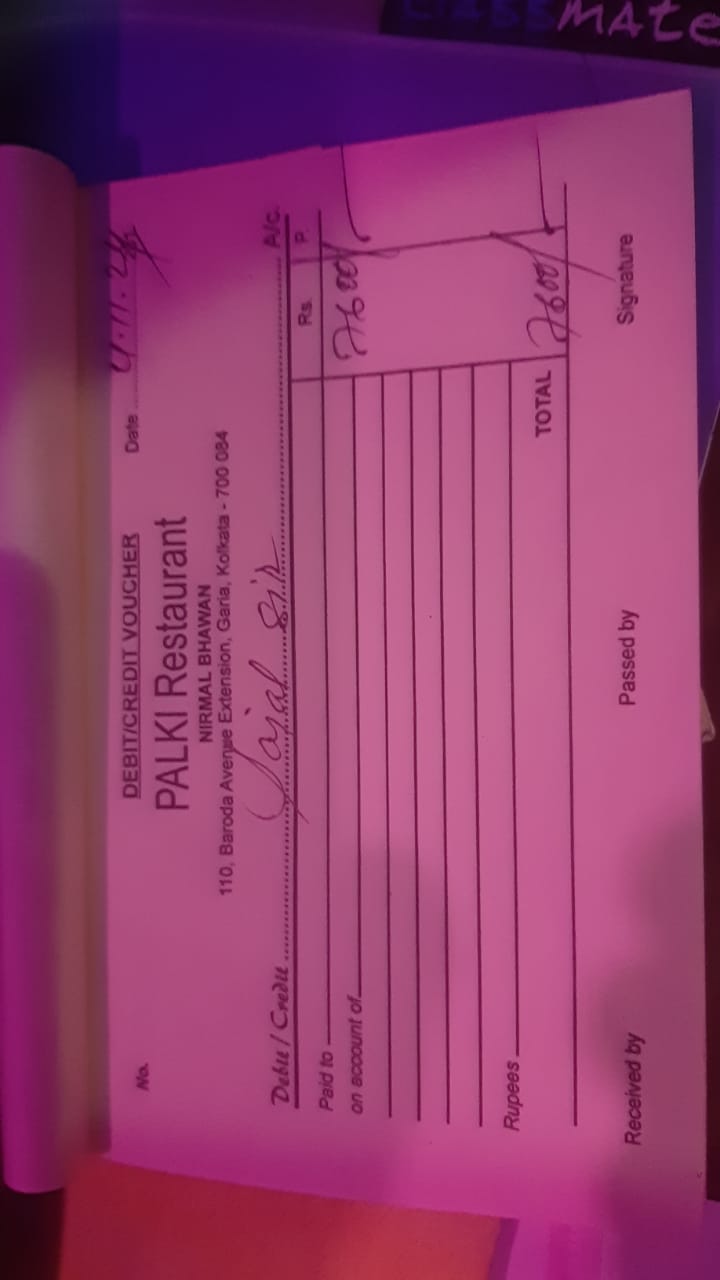 CLASSMATE
DEBIT/CREDIT VOUCHER
No.
Date 4.11.24
PALKI Restaurant
NIRMAL BHAWAN
110, Baroda Avenue Extension, Garia, Kolkata - 700 084
Debit / Credit Sajal Sir A/c.
Rs. P.
Paid to
on account of 7600/-
Rupees
TOTAL 7600/-
Received by Passed by Signature